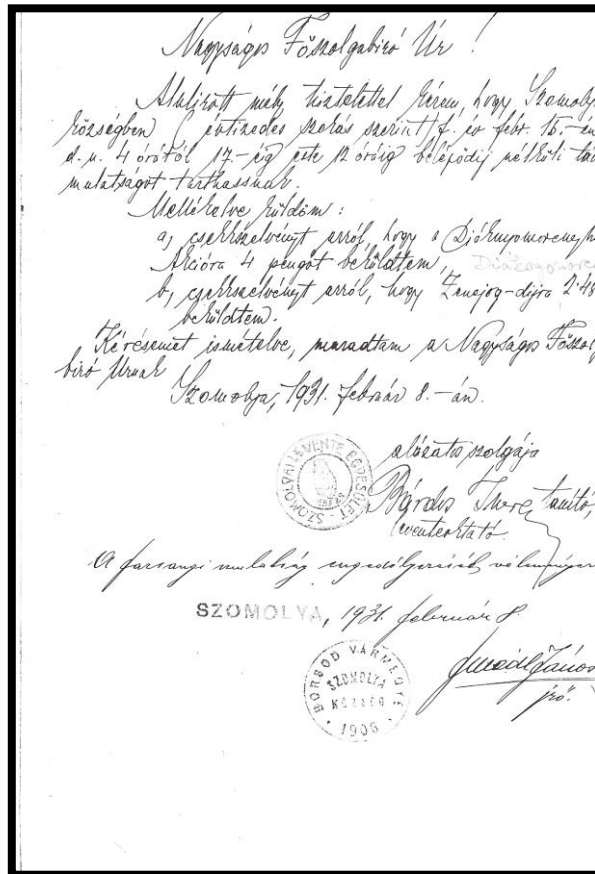 Nagyságos Főszolgabíró Úr !
Alulírott mély tisztelettel kérem, hogy Szomolya
községben ( évtizedes szokás szerint) f. év febr. 15.-én
d. u. 4 órától 17.-ig este 12 óráig belépődíj nélküli
mulatságot tarthassunk.
Mellékelve küldöm :
a, csekkszelvényt arról hogy a
Akcióra 4 pengőt beküldtem,
b, csekkszelvényt arról, hogy Zenejog-díjra 2.48
beküldtem.
Kérésemet ismételve, maradtam a Nagyságos Főszolg
bíró Úrnak
Szomolya, 1931. február 8.-án.
alázatos szolgája
SZOMOLYAI LEVENTE EGYESÜLET
Bárdos Imre tanító,
leventeoktató.
A farsangi mulatság engedélyezését
SZOMOLYA, 1931. február 8.
BORSOD VÁRMEGYE
SZOMOLYA
KÖZSÉG
1906
János
jző.